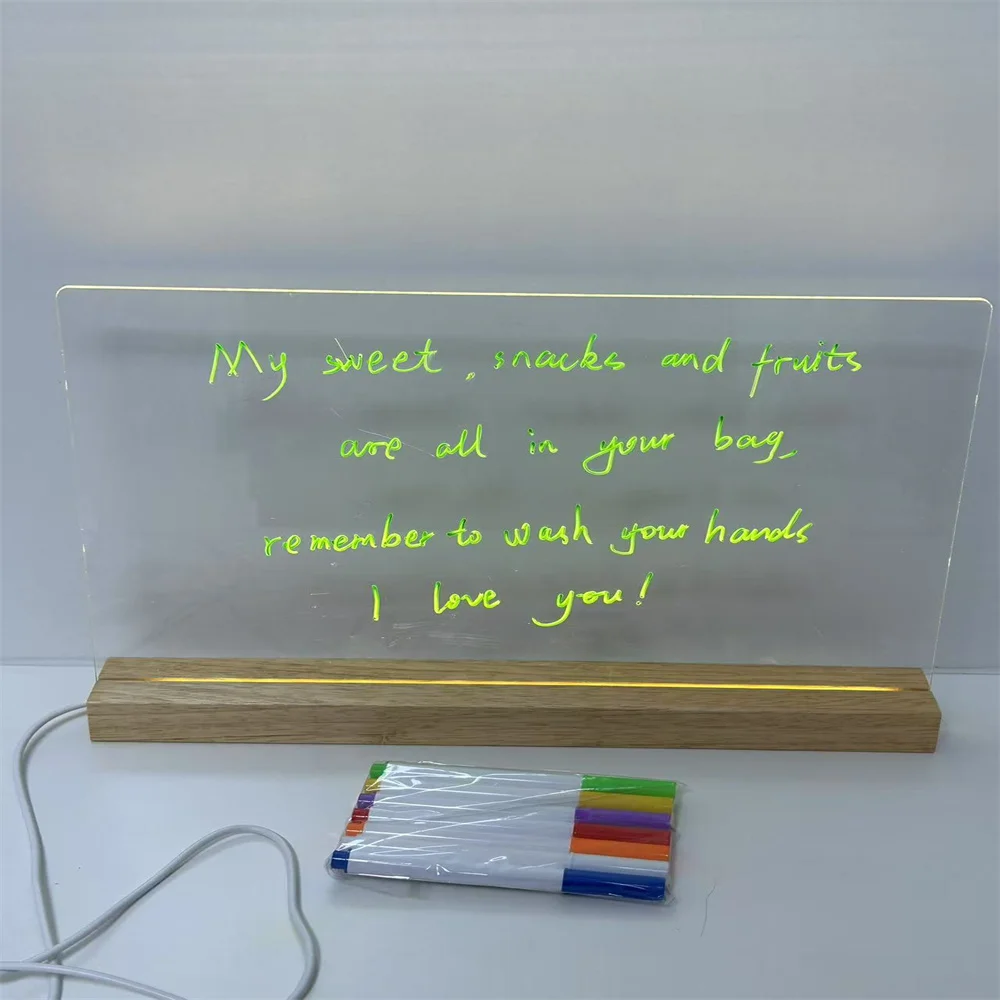 My sweet, snacks and fruits
are all in your bag,
remember to wash your hands
I love you!